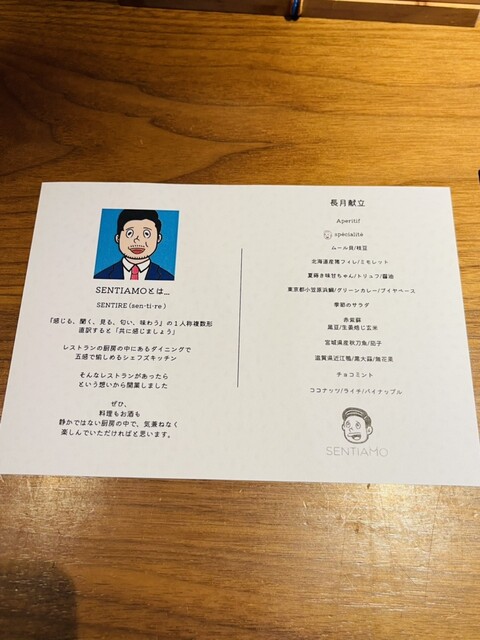 SENTIAMOとは...
SENTIRE (sen·ti·re)
「感じる、聞く、見る、匂い、味わう」の1人称複数形
直訳すると「共に感じましょう」
レストランの厨房の中にあるダイニングで
五感で愉しめるシェフズキッチン
そんなレストランがあったら
という想いから開業しました
ぜひ、
料理もお酒も
静かではない厨房の中で、気兼ねなく
楽しんでいただければと思います。
長月献立
Aperitif
spécialité
ムール貝/枝豆
北海道産鴨フィレ/ミモレット
夏蒔き味甘ちゃん/トリュフ/醤油
東京都小笠原浜鯛/グリーンカレー/ブイヤベース
季節のサラダ
赤紫蘇
黒豆/生姜焙じ玄米
宮城県産秋刀魚/茄子
滋賀県近江鴨/黒大蒜/無花果
チョコミント
ココナッツ/ライチ/パイナップル
SENTIAMO